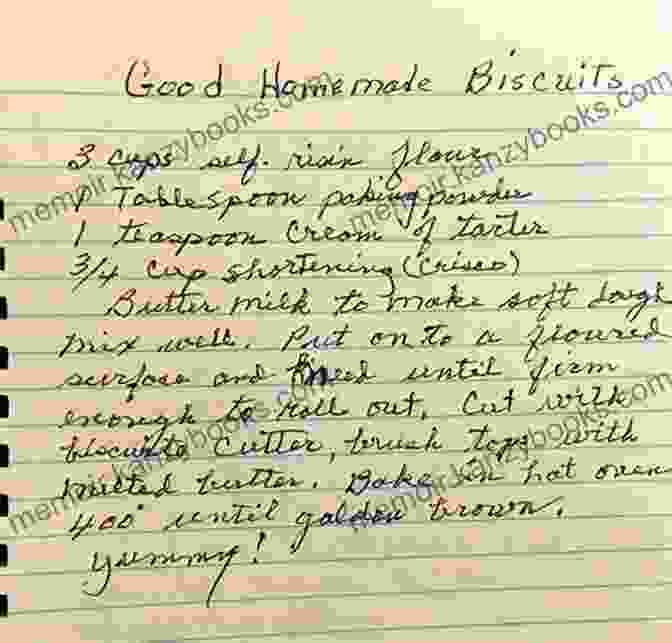 Good Homemade Biscuits
3 cups self. risin flour
1 Tablespoon baking powder
1 teaspoon Cream of tarter
3/4 cup shortening (Crisco)
Butter milk to make soft dough
mix well. Put on to a floured
surface and kneed until firm
enough to roll out. Cut with
biscuits cutter, brush tops with
melted butter. Bake in hot oven
400° until golden brown.
yummy!
memoir.kanzybooks.com
memoir.kanzybooks.com
memoir.kanzybooks.com
memoir.kanzybooks.com